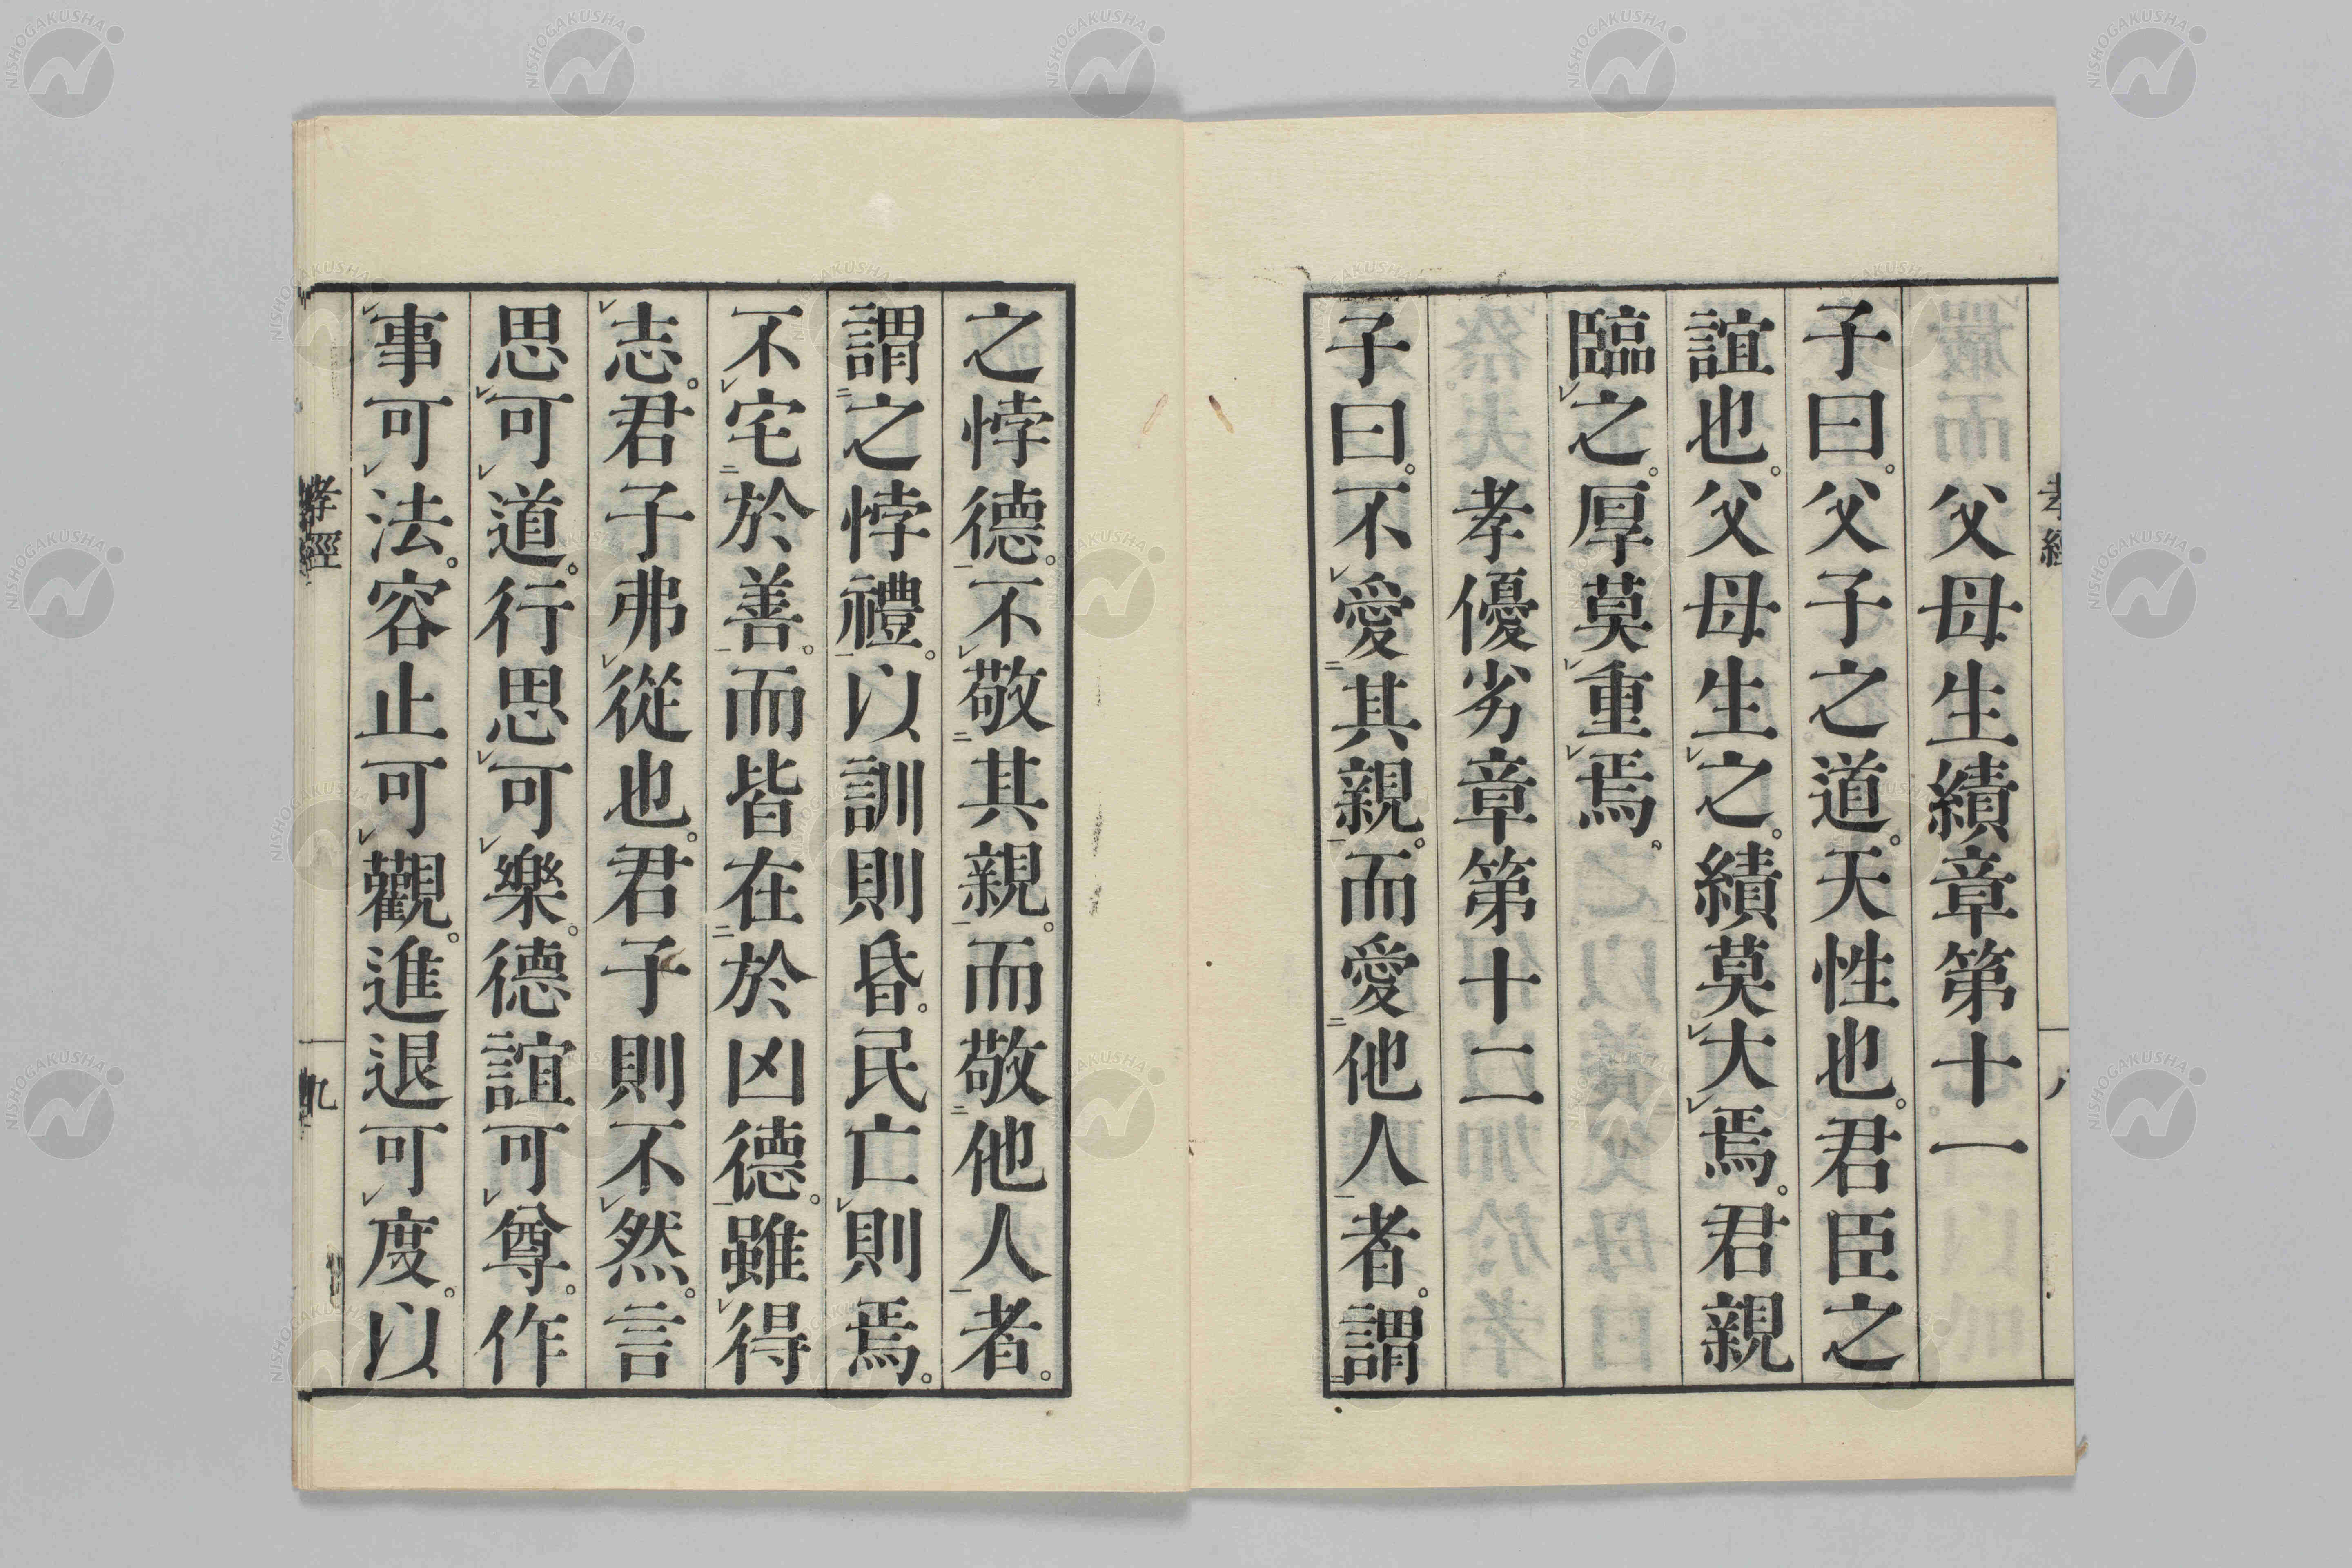 孝經
八
父母生績章第十一
子曰。父子之道。天性也。君臣之
誼也。父母生㆑之。績莫㆑大㆑焉。君親
臨㆑之。厚莫㆑重㆑焉。
孝優劣章第十二
子曰。不㆑愛㆓其親㆒。而愛㆓他人㆒者。謂㆓
之悖德㆒。不㆑敬㆓其親㆒。而敬㆓他人㆒者。
謂㆓之悖禮㆒。以訓則昏。民亡㆑則焉。
不㆑宅㆓於善㆒。而皆在㆓於凶德㆒。雖㆑得㆑
志。君子弗㆑從也。君子則不㆑然。言
思㆑可㆑道。行思㆑可㆑樂。德誼可㆑尊。作㆑
事可㆑法。容止可㆑觀。進退可㆑度。以
孝經
九
NISHOGAKUSHA